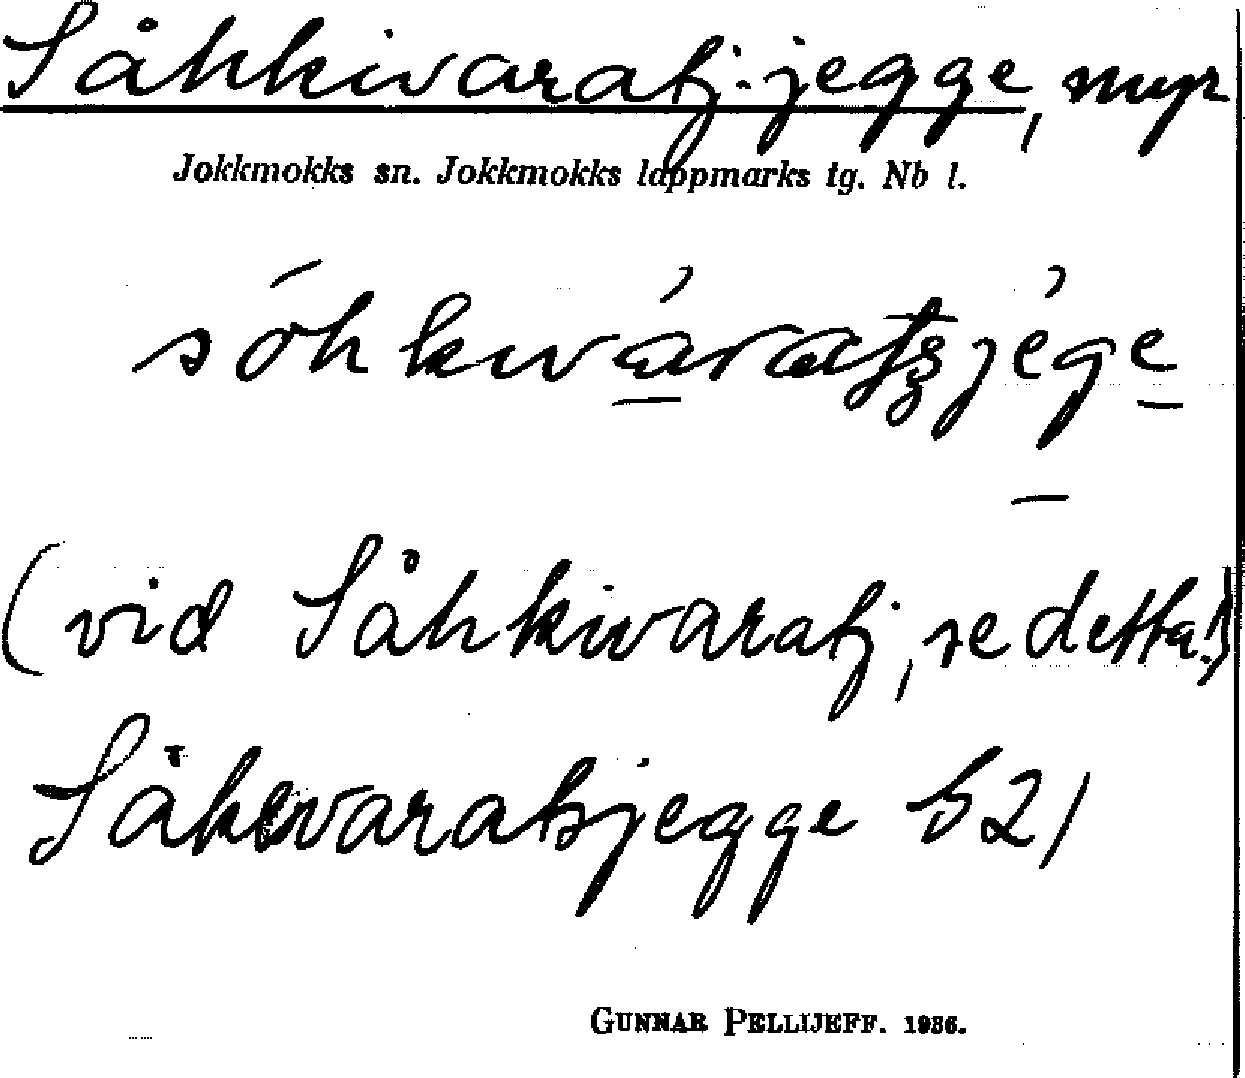 Såhkivaratj-jegge, myr
Jokkmokks sn. Jokkmokks lappmarks tg. Nb l.
(vid Såhkivaratj, se detta!)
Såkevaratsjegge b2)
GUNNAR PELLIJEFF. 1936.